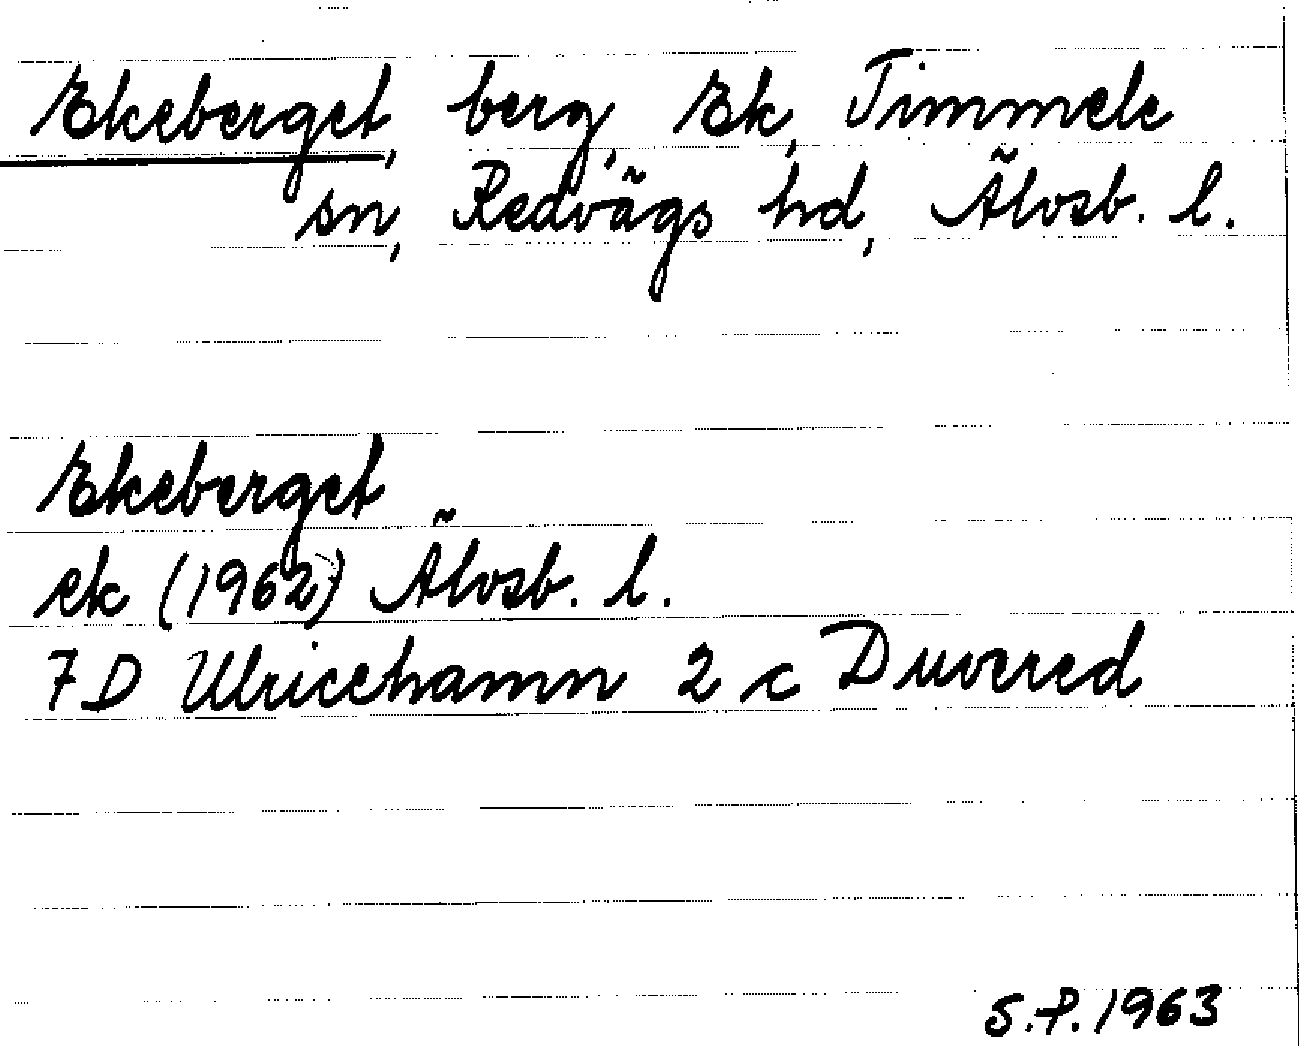 Ekeberget, berg, Ek, Timmele
sn, Redvägs hd, Älvsb. l.
Ekeberget
ek (1962) Älvsb. l.
7D Ulricehamn 2 c Duvered
S.P. 1963